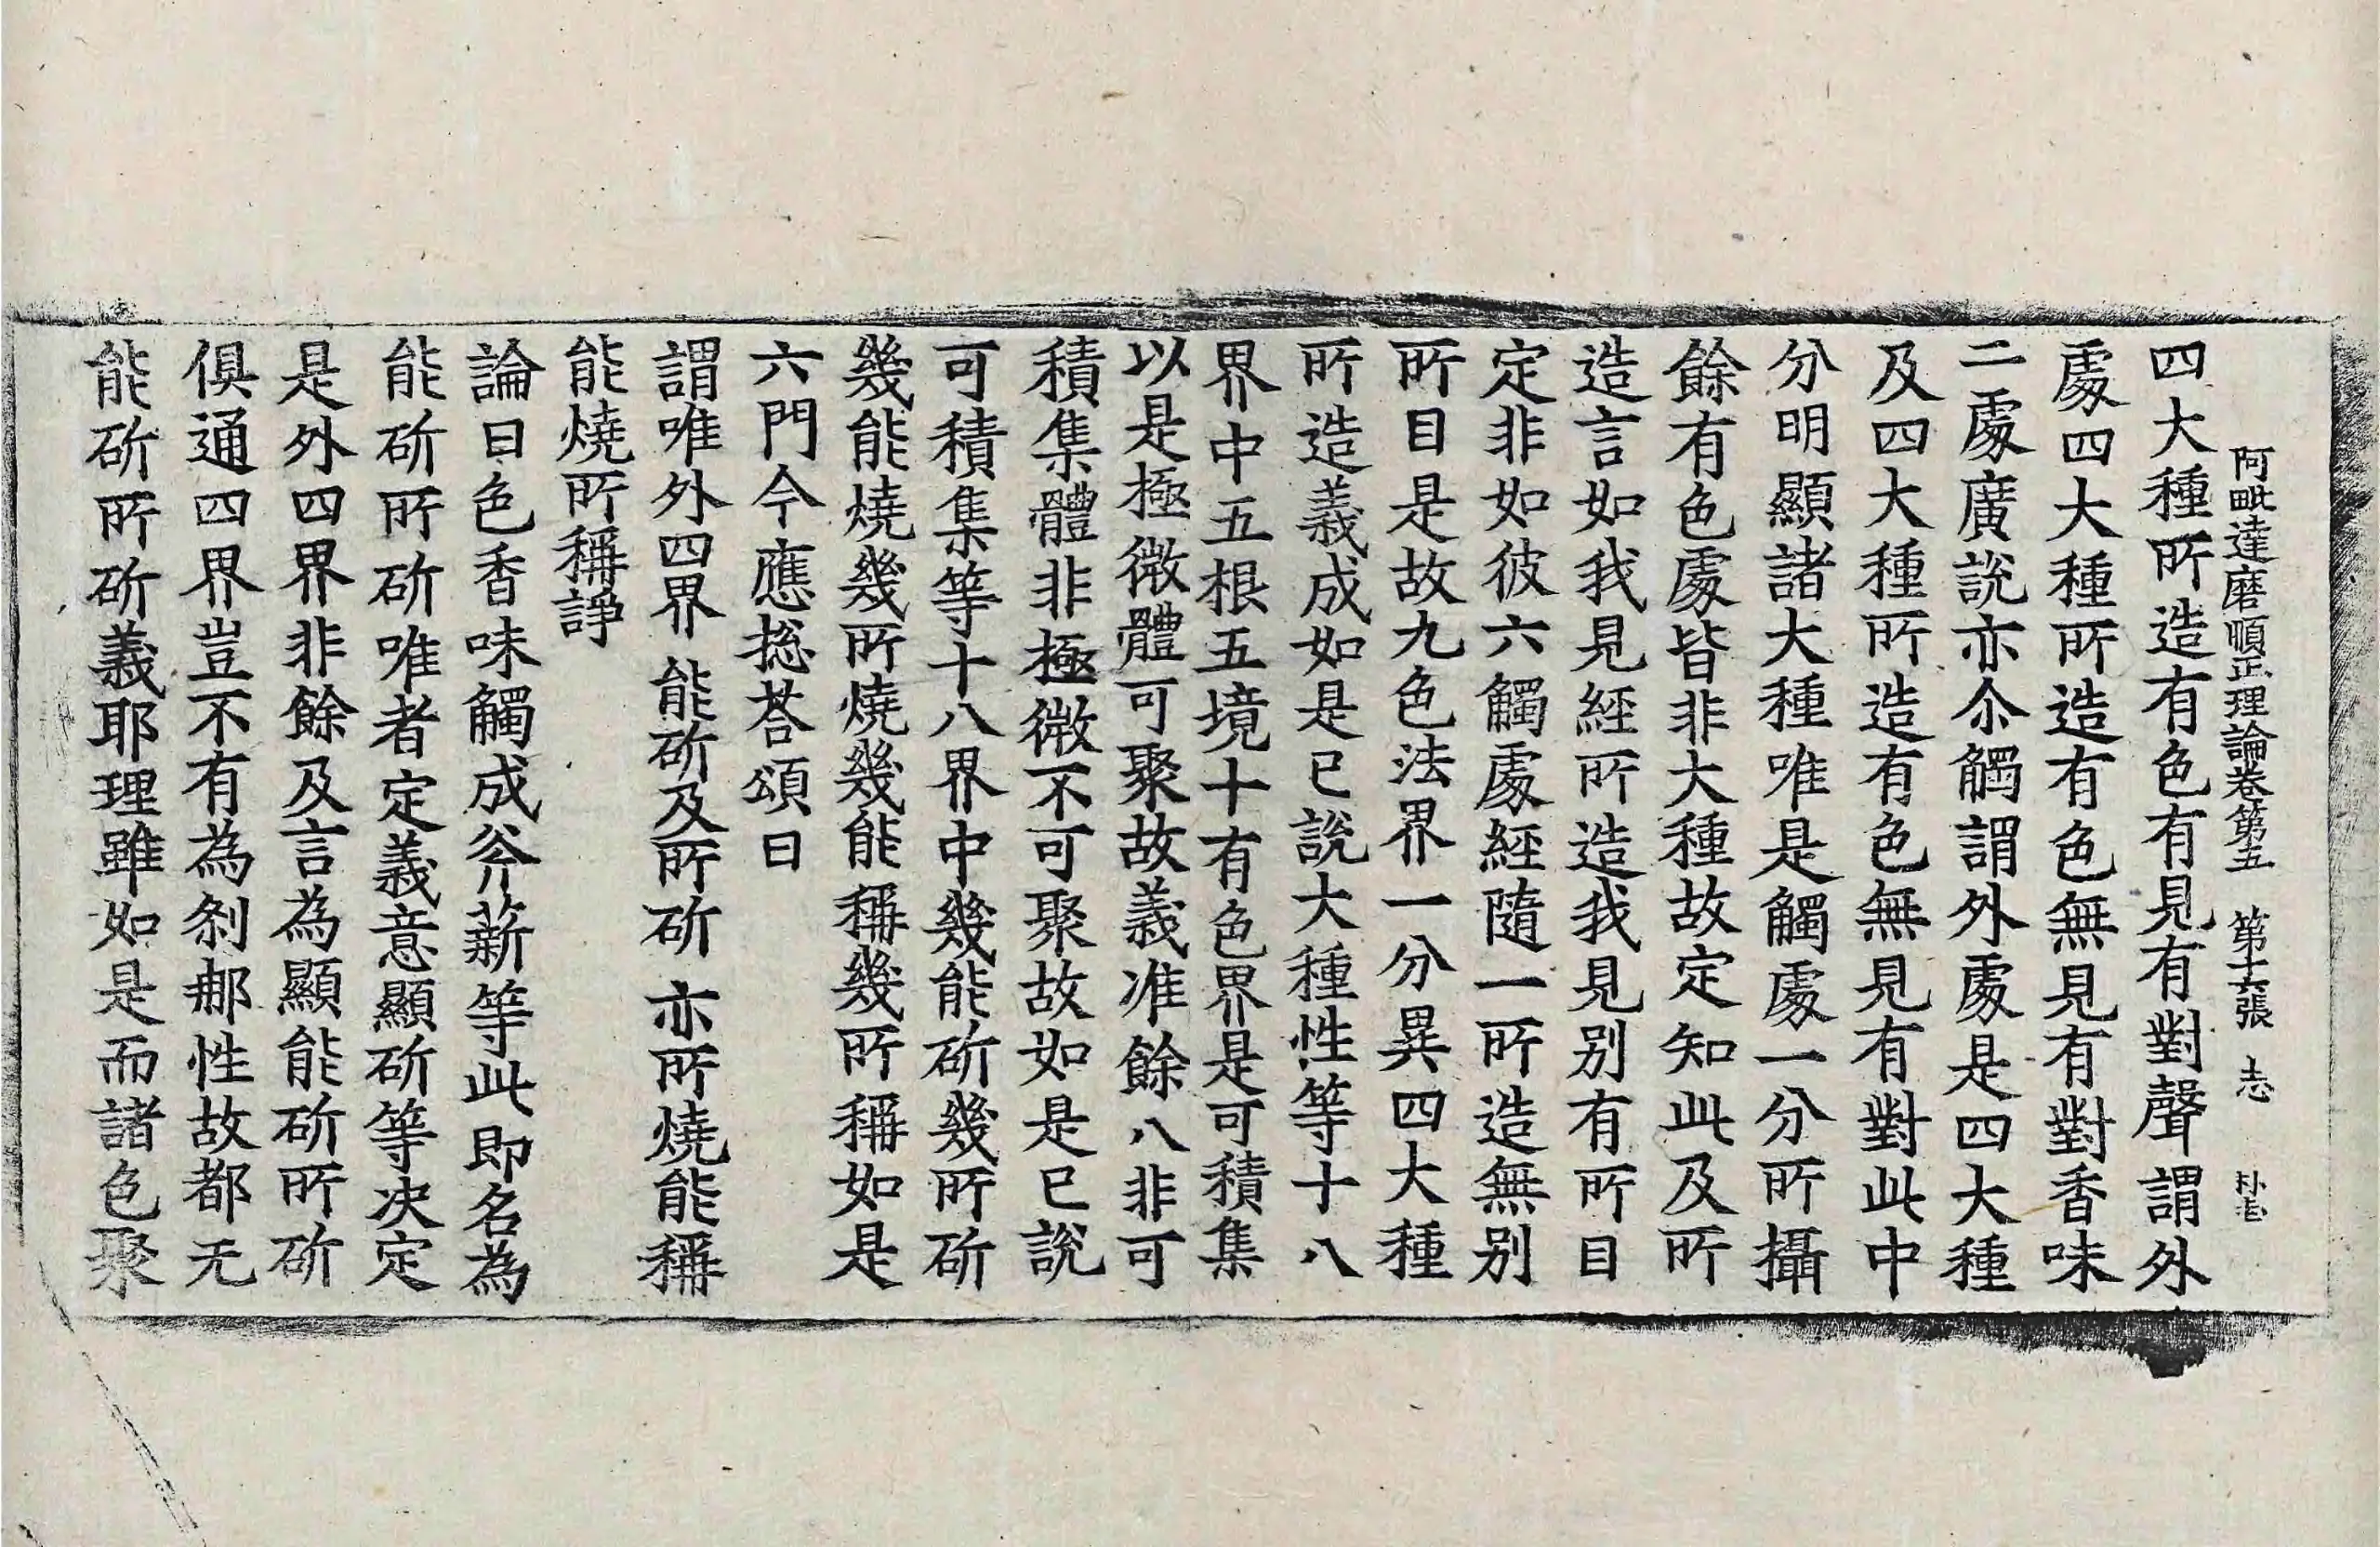 阿毗達磨順正理論卷第五 第十六張 志
四大種所造有色有見有對聲謂外
處四大種所造有色無見有對香味
二處廣說亦尒觸謂外處是四大種
及四大種所造有色無見有對此中
分明顯諸大種唯是觸處一分所攝
餘有色處皆非大種故定知此及所
造言如我見經所造我見别有所目
定非如彼六觸處經隨一所造無别
所目是故九色法界一分異四大種
所造義成如是已說大種性等十八
界中五根五境十有色界是可積集
以是極微體可聚故義准餘八非可
積集體非極微不可聚故如是已說
可積集等十八界中幾能斫幾所斫
幾能燒幾所燒幾能稱幾所稱如是
六門今應捴荅頌曰
謂唯外四界 能斫及所斫 亦所燒能稱
能燒所稱諍
論曰色香味觸成斧薪等此即名為
能斫所斫唯者定義意顯斫等决定
是外四界非餘及言為顯能斫所斫
俱通四界豈不有為刹那性故都无
能斫所斫義耶理雖如是而諸色聚